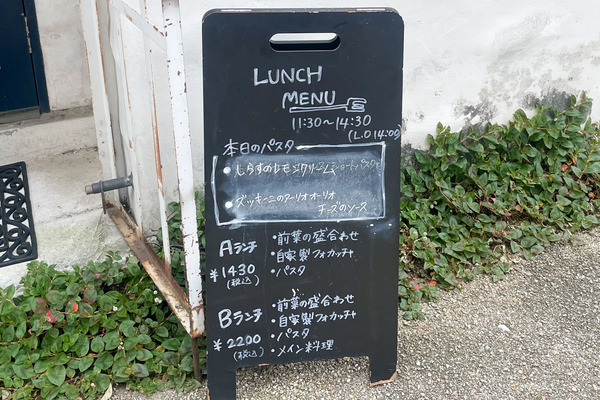 LUNCH
MENU
11:30〜14:30
(L.O 14:00)
本日のパスタ
・しらすのレモンクリーム ショートパスタ
・ズッキーニのアーリオオーリオ
チーズのソース
Aランチ
¥1430
(税込)
・前菜の盛合わせ
・自家製フォカッチャ
・パスタ
Bランチ
¥2200
(税込)
・前菜の盛合わせ
・自家製フォカッチャ
・パスタ
・メイン料理